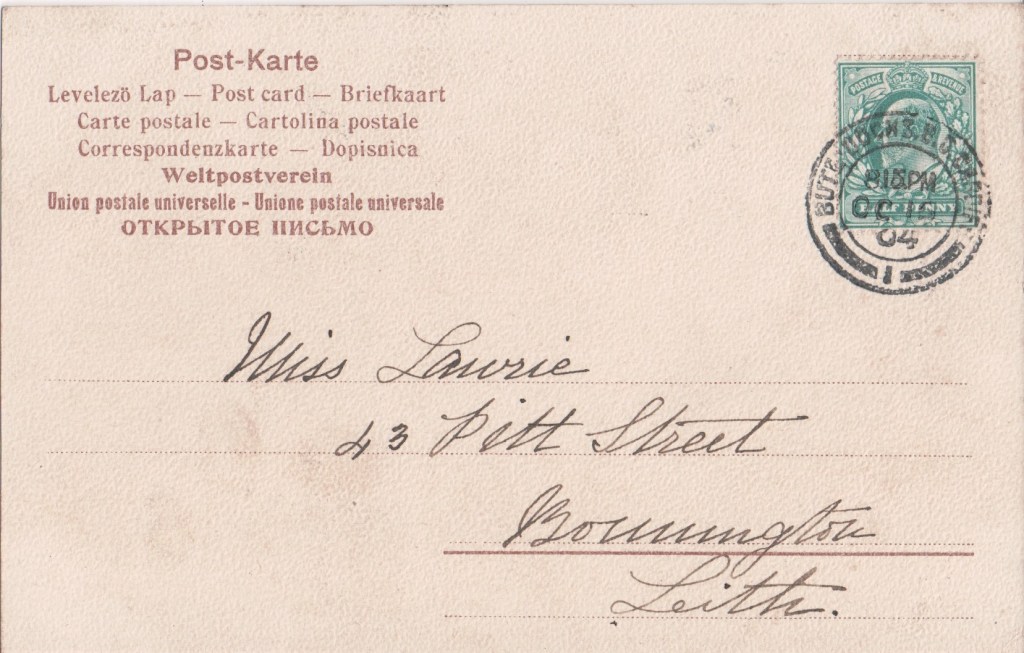 Post-Karte
Levelezö Lap — Post card — Briefkaart
Carte postale — Cartolina postale
Correspondenzkarte — Dopisnica
Weltpostverein
Union postale universelle - Unione postale universale
ОТКРЫТОЕ ПИСЬМО
POSTAGE & REVENUE
HALF PENNY
8 15 PM
OC 18
04
1
Miss Lawrie
43 Pitt Street
Bonnington
Leith.